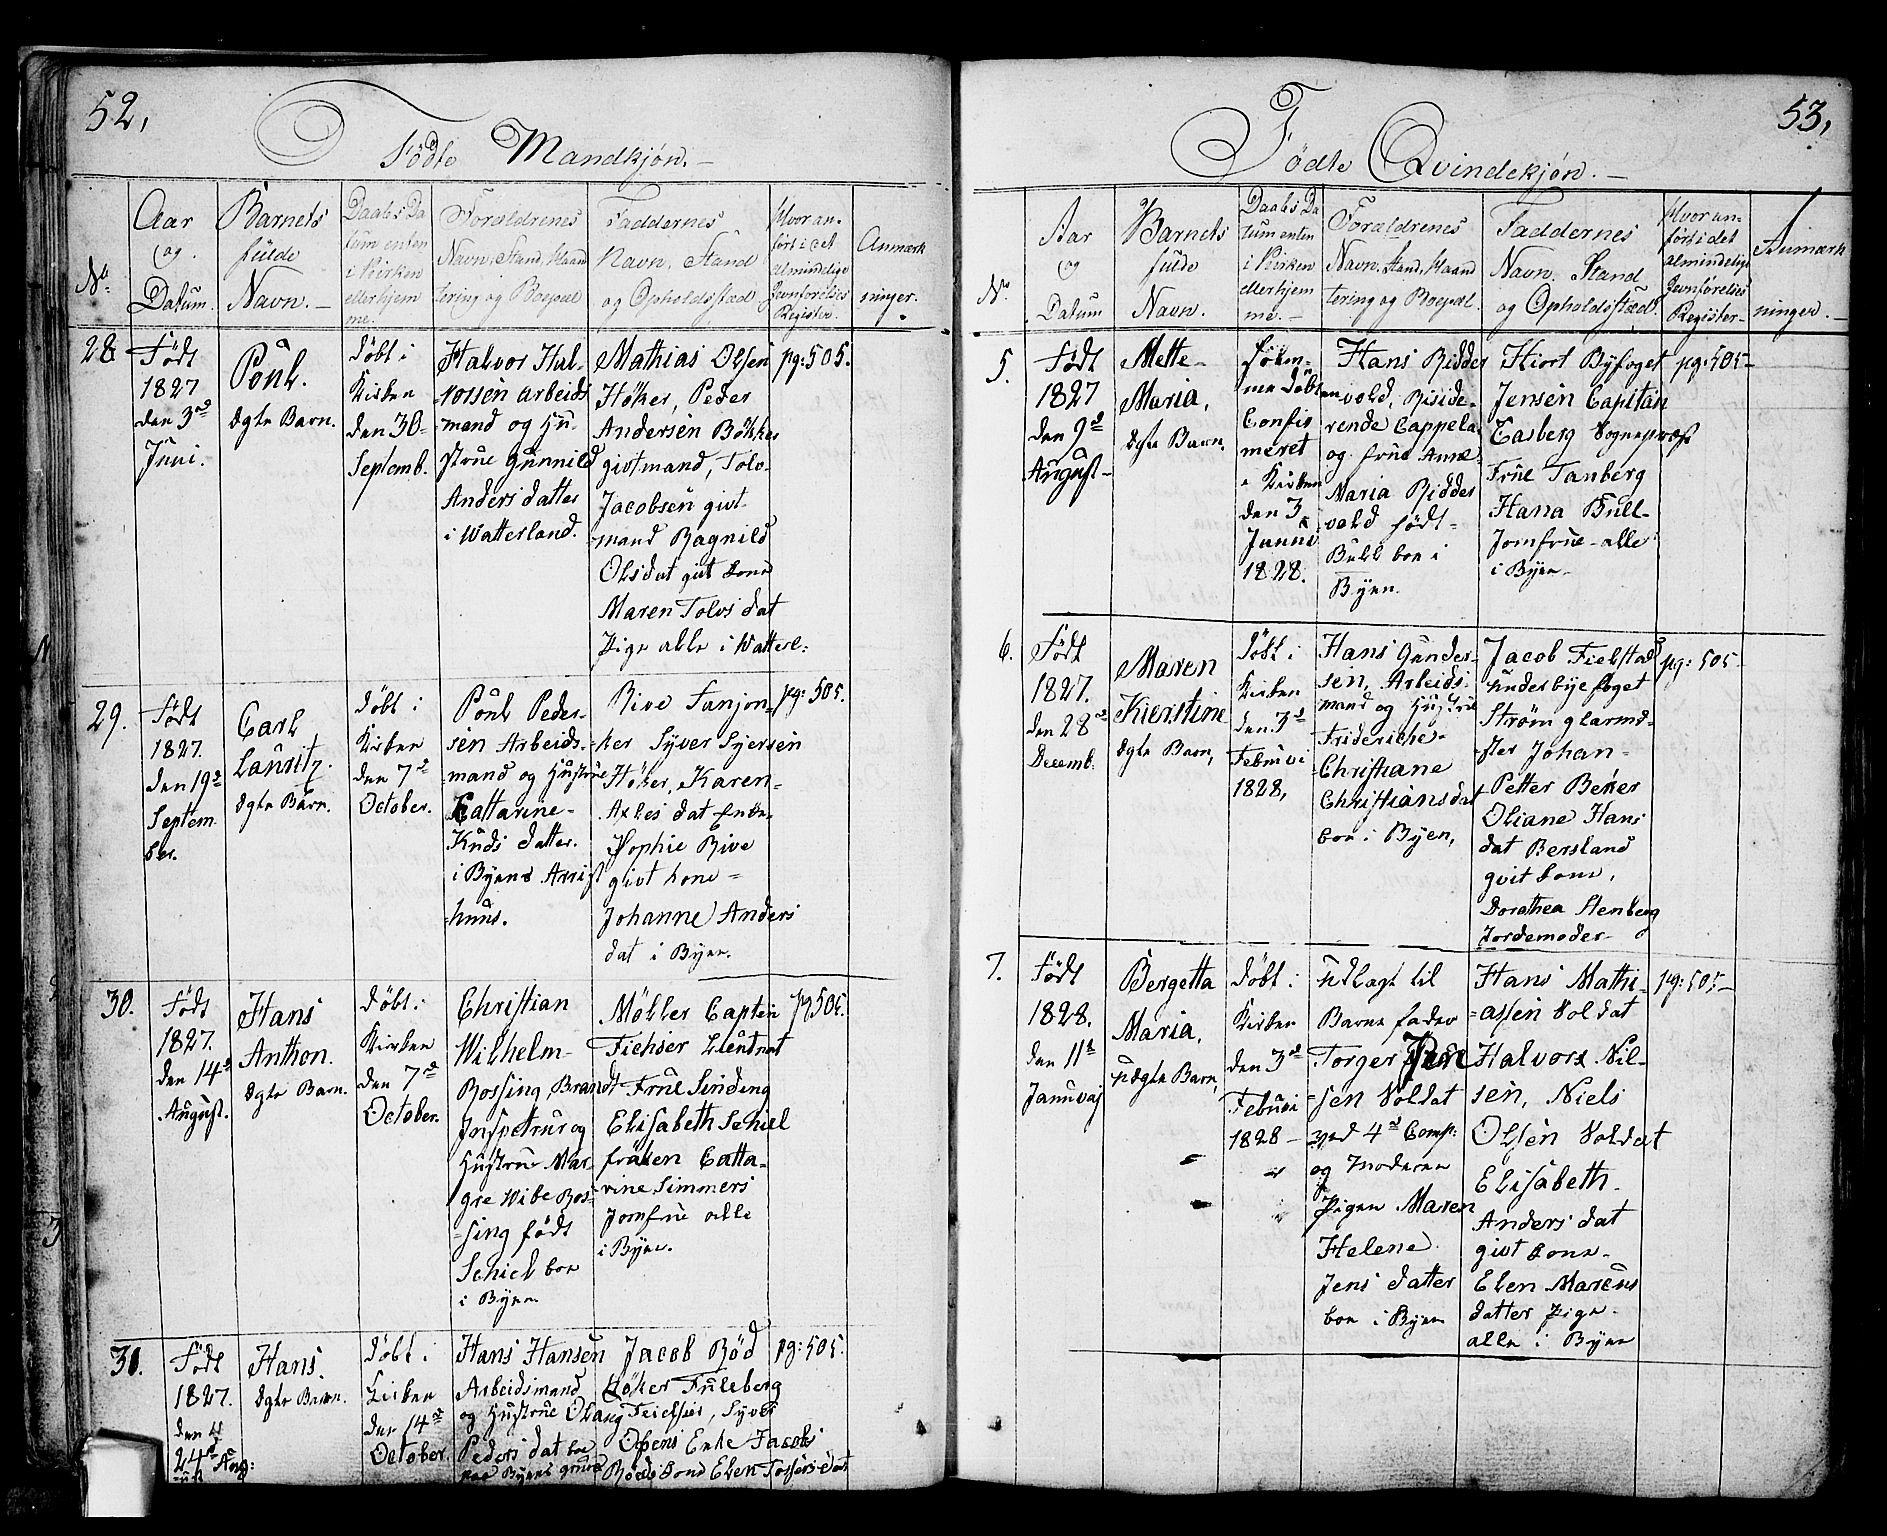 52,
Födte Mandkjøn.
No.
Aar
og
Datum.
Barnets
fulde
Navn.
Daabs Da
tum enten
i Kirken
eller hjem
me.
Forældrenes
Navn, Stand, Haand
tering og Boepæl
Faddernes
Navn, Stand
og Opholdsstæd
Hvor an-
ført i det
almindelige
Jevnførelses
Register.
Anmærk
ninger.
28
Födt
1827
den 3de
Juni.
Poul.
ægte Barn.
Döbt i
Kirken
den 30
Septemb.
Halvor Hal-
vorsen arbeids
mand og Hu-
strue Gunnild
Anders datter
i Watterland.
Mathias Olsen
Höker, Peder
Andersen Bökker
givtmand, Tolv
Jacobsen givt-
mand Ragnild
Olsdat givt kone
Maren Tolvs dat
Pige alle i Watterl:
pg: 505.
29.
Födt
1827.
den 19de
Septem
ber.
Carl
Lauritz.
ægte Barn.
Döbt i
Kirken
den 7de
October.
Poul Peder-
sen Arbeids-
mand og Hustrue
Cattarine
Knds datter.
i Byens Arrist
huus.
Rive
ker Syver Syersen
Höker, Karen
dat Enke.
Sophie Rive
givt kone
Johanne Anders
dat i Byen.
pg: 505.
30.
Födt
1827.
den 14de
August.
Hans
Anthon.
ægte Barn.
Döbt i
Kirken
den 7de
October.
Christian
Wilhelm
Rossing, Brand
Inspetrur og
Hustrue Mar-
gre Wibe Ros-
sing födt
Schiel boe
i Byen
Möller Captein
Lieutnat
Frue Sinding
Elisabeth Schiel
fröken Catta-
rine Simmers
Jomfrue alle
i Byen.
pg 505.
31.
Födt
1827.
den
24de Aug:
ust
Hans.
ægte Barn.
Döbt i
Kirken
den 14de
October.
Hans Hansen
Arbeidsmand
og Hustrue
Peders dat boe
paa Byens grund
Jacob Röd
Höker Fuleberg
Syver
Olsens Enke Jacob
Röds kone Elen Tossers dat
pg: 505.
53,
Födte Qvindekjøn.
No.
Aar
og
Datum
Barnets
fulde
Navn.
Daabs Da
tum enten
i Kirken
eller hjem
me.
Forældrenes
Navn, Stand, Haand
tering og Boepæl.
Faddernes
Navn, Stand
og Opholdsstæd.
Hvor an-
ført i det
almindelige
Jevnførelses
Register
Anmærk
ninger.
5.
Födt
1827
den 9de
August
Mette
Maria,
ægte Barn.
hiem-
me döbt
Confir
meret
i Kirken
den 3
Junni
1828.
Hans Ridder
vold, Residere
rende Cappela
og frue Anne
Maria Ridder
vold födt
Bull boe i
Byen.
Hiort Byfoget
Jensen Capitän
Tasberg Sognepræst
Frue Tanberg
Hana Bull
Jomfrue alle
i Byen
pg: 505
6.
Födt
1827.
den 28de
Decemb.
Maren
Kierstine
ægte Barn,
Döbt i
Kirken
den 3de
Februvi
1828,
Hans Gunder-
sen, Arbeids
mand og Hustrue
Frideriche
Christiane
Christians dat
boe i Byen,
Jacob Fielstad
underbyefoget
Ström glarme-
ster Johan
Petter Beker
Oliane Hans
dat Bersland
gvit kone,
Dorathea Stenberg
Jordemoder
pg: 505
7.
Födt
1828.
den 11te
Januvaj
Bergetta
Maria,
uægte Barn,
Döbt i
Kirken
den 3de
Februvi
1828
Udlagt til
Barne fader
Torger Jen
sen Soldat
ved 4de Comp:
og Moderen
Pigen Maren
Helene
Jens datter
boe i Byen
Hans Mathi-
assen Soldat
Halvors Nil-
sen, Niels
Olsen Soldat
Elisabeth
Anders dat
givt kone
Elen Marcus
datter Pige
alle i Byen
pg: 505